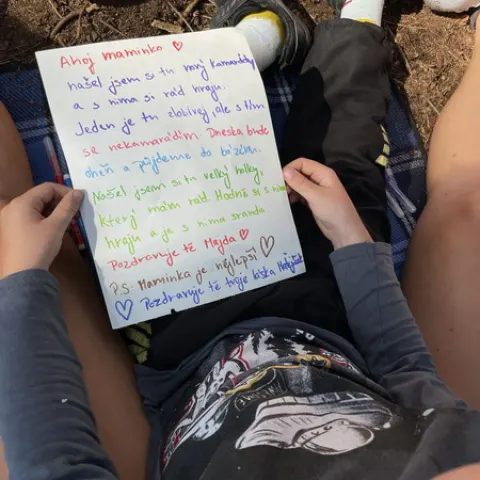 Ahoj maminko ♡
našel jsem si tu nový kamarády
a s nima si rád hraju.
Jeden je tu zlobivej, ale s tím
se nekamarádím. Dneska bude
oheň a půjdeme do bazénu.
Našel jsem si tu velký holky,
který mám rád. Hodně si s nima
hraju a je s nima sranda.
Pozdravuje tě Majda ♡
P.S: Maminka je nejlepší ♡
♡ Pozdravuje tě tvoje láska